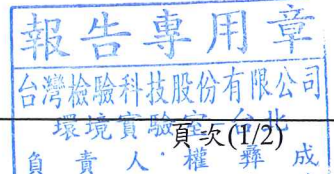 報告專用章
台灣檢驗科技股份有限公司
環境實驗室-台北
頁次(1/2)
負責人：權彝成